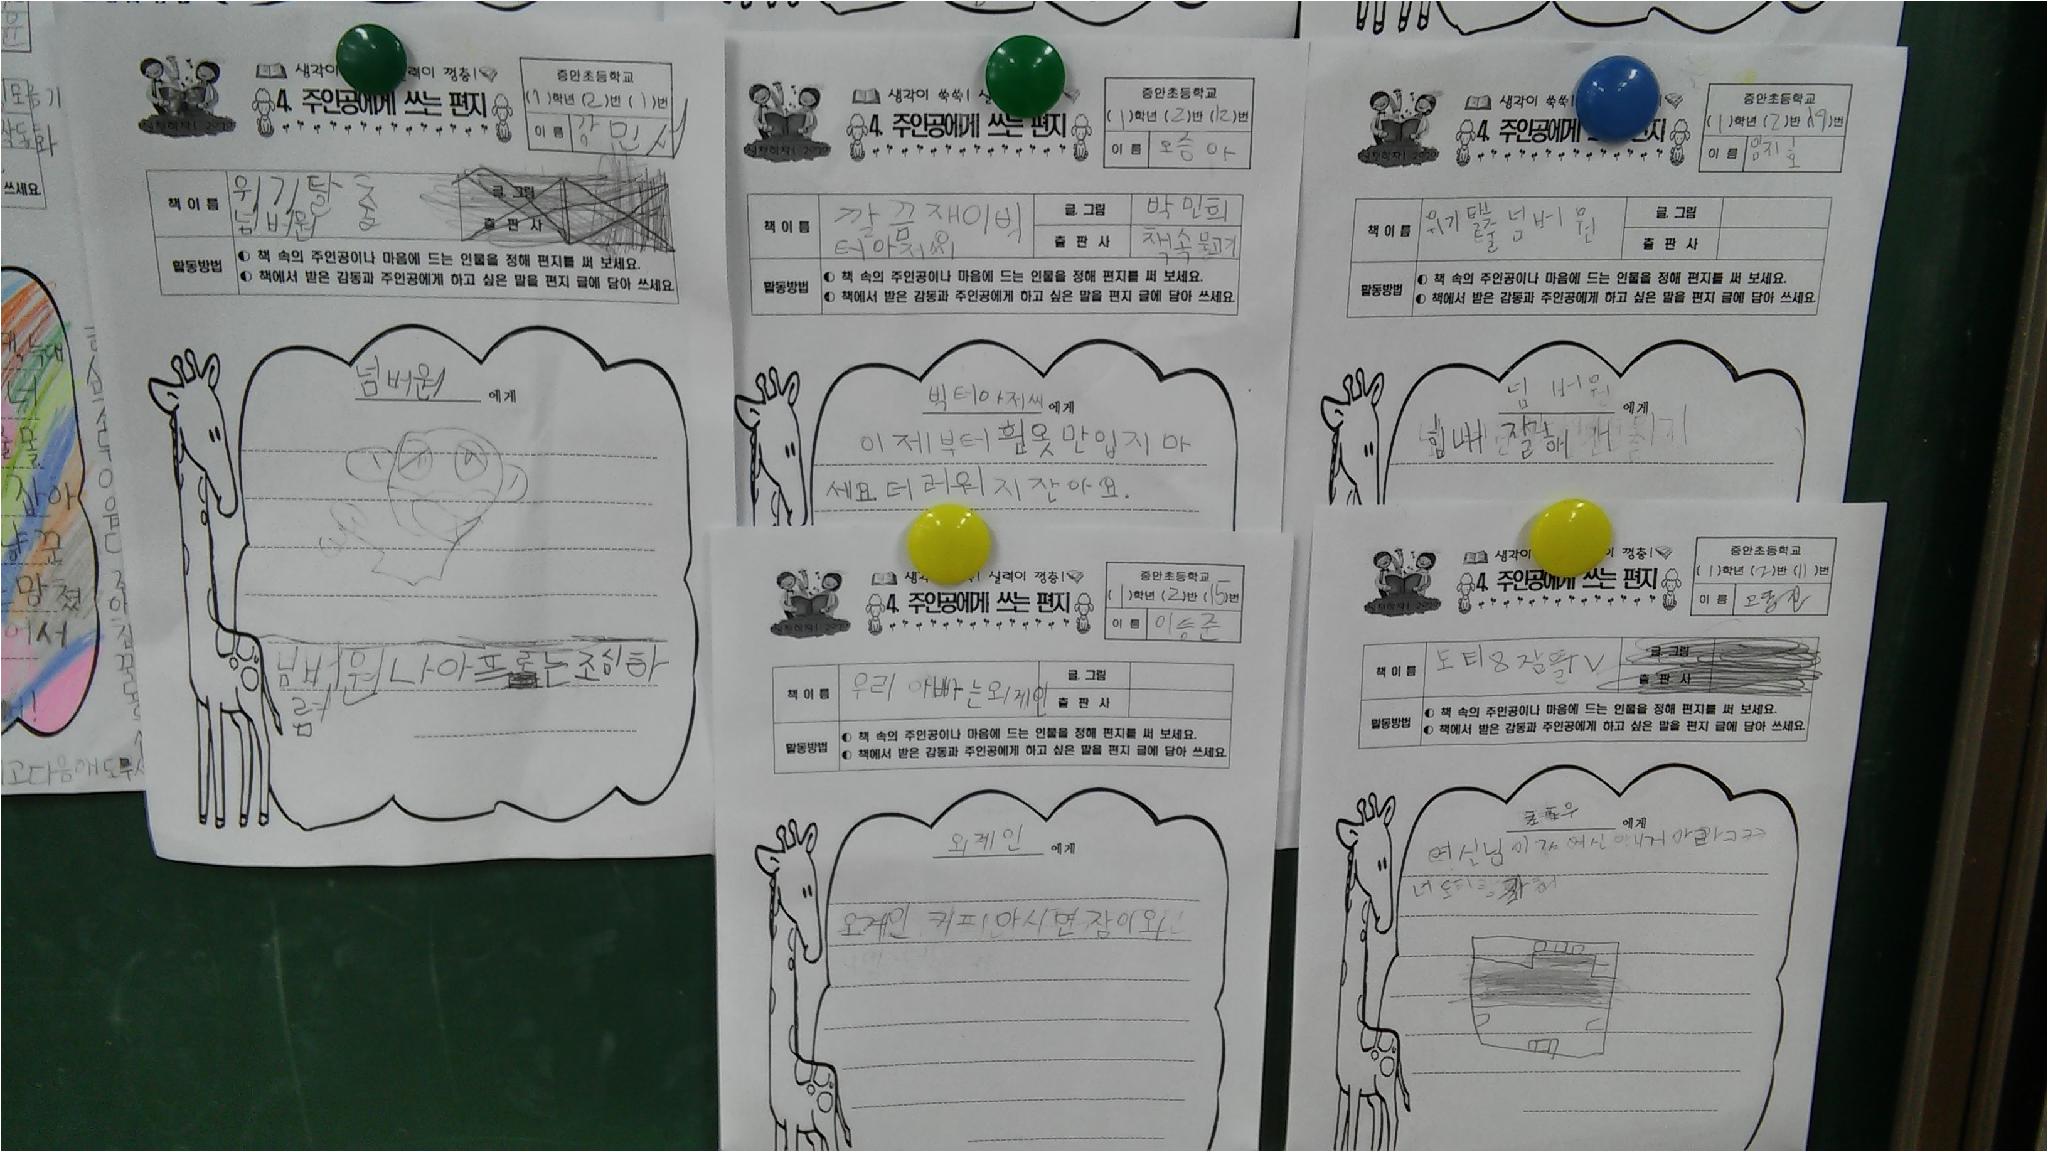 생각이 실력이 껑충!
4. 주인공에게 쓰는 편지
증안초등학교
(1)학년 (2)반 (1)번
이 름 강민서
책 이 름 위기탈출
넘버원
글 그림
출 판 사
활동방법
◐ 책 속의 주인공이나 마음에 드는 인물을 정해 편지를 써 보세요.
◐ 책에서 받은 감동과 주인공에게 하고 싶은 말을 편지 글에 담아 쓰세요.
넘버원 에게
넘버원 나 아프로는 조심하
렴
생각이 쑥쑥!
4. 주인공에게 쓰는 편지
증안초등학교
(1)학년 (2)반 (12)번
이 름 오승아
책 이 름 깔끔재이빅
터아저씨
글 그림 박민희
출 판 사 책속물고기
활동방법
◐ 책 속의 주인공이나 마음에 드는 인물을 정해 편지를 써 보세요.
◐ 책에서 받은 감동과 주인공에게 하고 싶은 말을 편지 글에 담아 쓰세요.
빅터아저씨 에게
이제부터 흰옷만입지마
세요. 더러워지잖아요.
생각이
4. 주인공에게 쓰는 편지
증안초등학교
(1)학년 (2)반 (19)번
이 름
책 이 름 위기탈출넘버원
글 그림
출 판 사
활동방법
◐ 책 속의 주인공이나 마음에 드는 인물을 정해 편지를 써 보세요.
◐ 책에서 받은 감동과 주인공에게 하고 싶은 말을 편지 글에 담아 쓰세요.
넘버원 에게
힘내 잘해
실력이 껑충!
4. 주인공에게 쓰는 편지
증안초등학교
(1)학년 (2)반 (15)번
이 름 이승준
책 이 름 우리 아빠는외계인
글 그림
출 판 사
활동방법
◐ 책 속의 주인공이나 마음에 드는 인물을 정해 편지를 써 보세요.
◐ 책에서 받은 감동과 주인공에게 하고 싶은 말을 편지 글에 담아 쓰세요.
외계인 에게
외계인 커피마시면 잠이와
생각이 껑충!
4. 주인공에게 쓰는 편지
증안초등학교
(1)학년 (2)반 (11)번
이 름
책 이 름 도티&잠뜰V
글 그림
출 판 사
활동방법
◐ 책 속의 주인공이나 마음에 드는 인물을 정해 편지를 써 보세요.
◐ 책에서 받은 감동과 주인공에게 하고 싶은 말을 편지 글에 담아 쓰세요.
에게